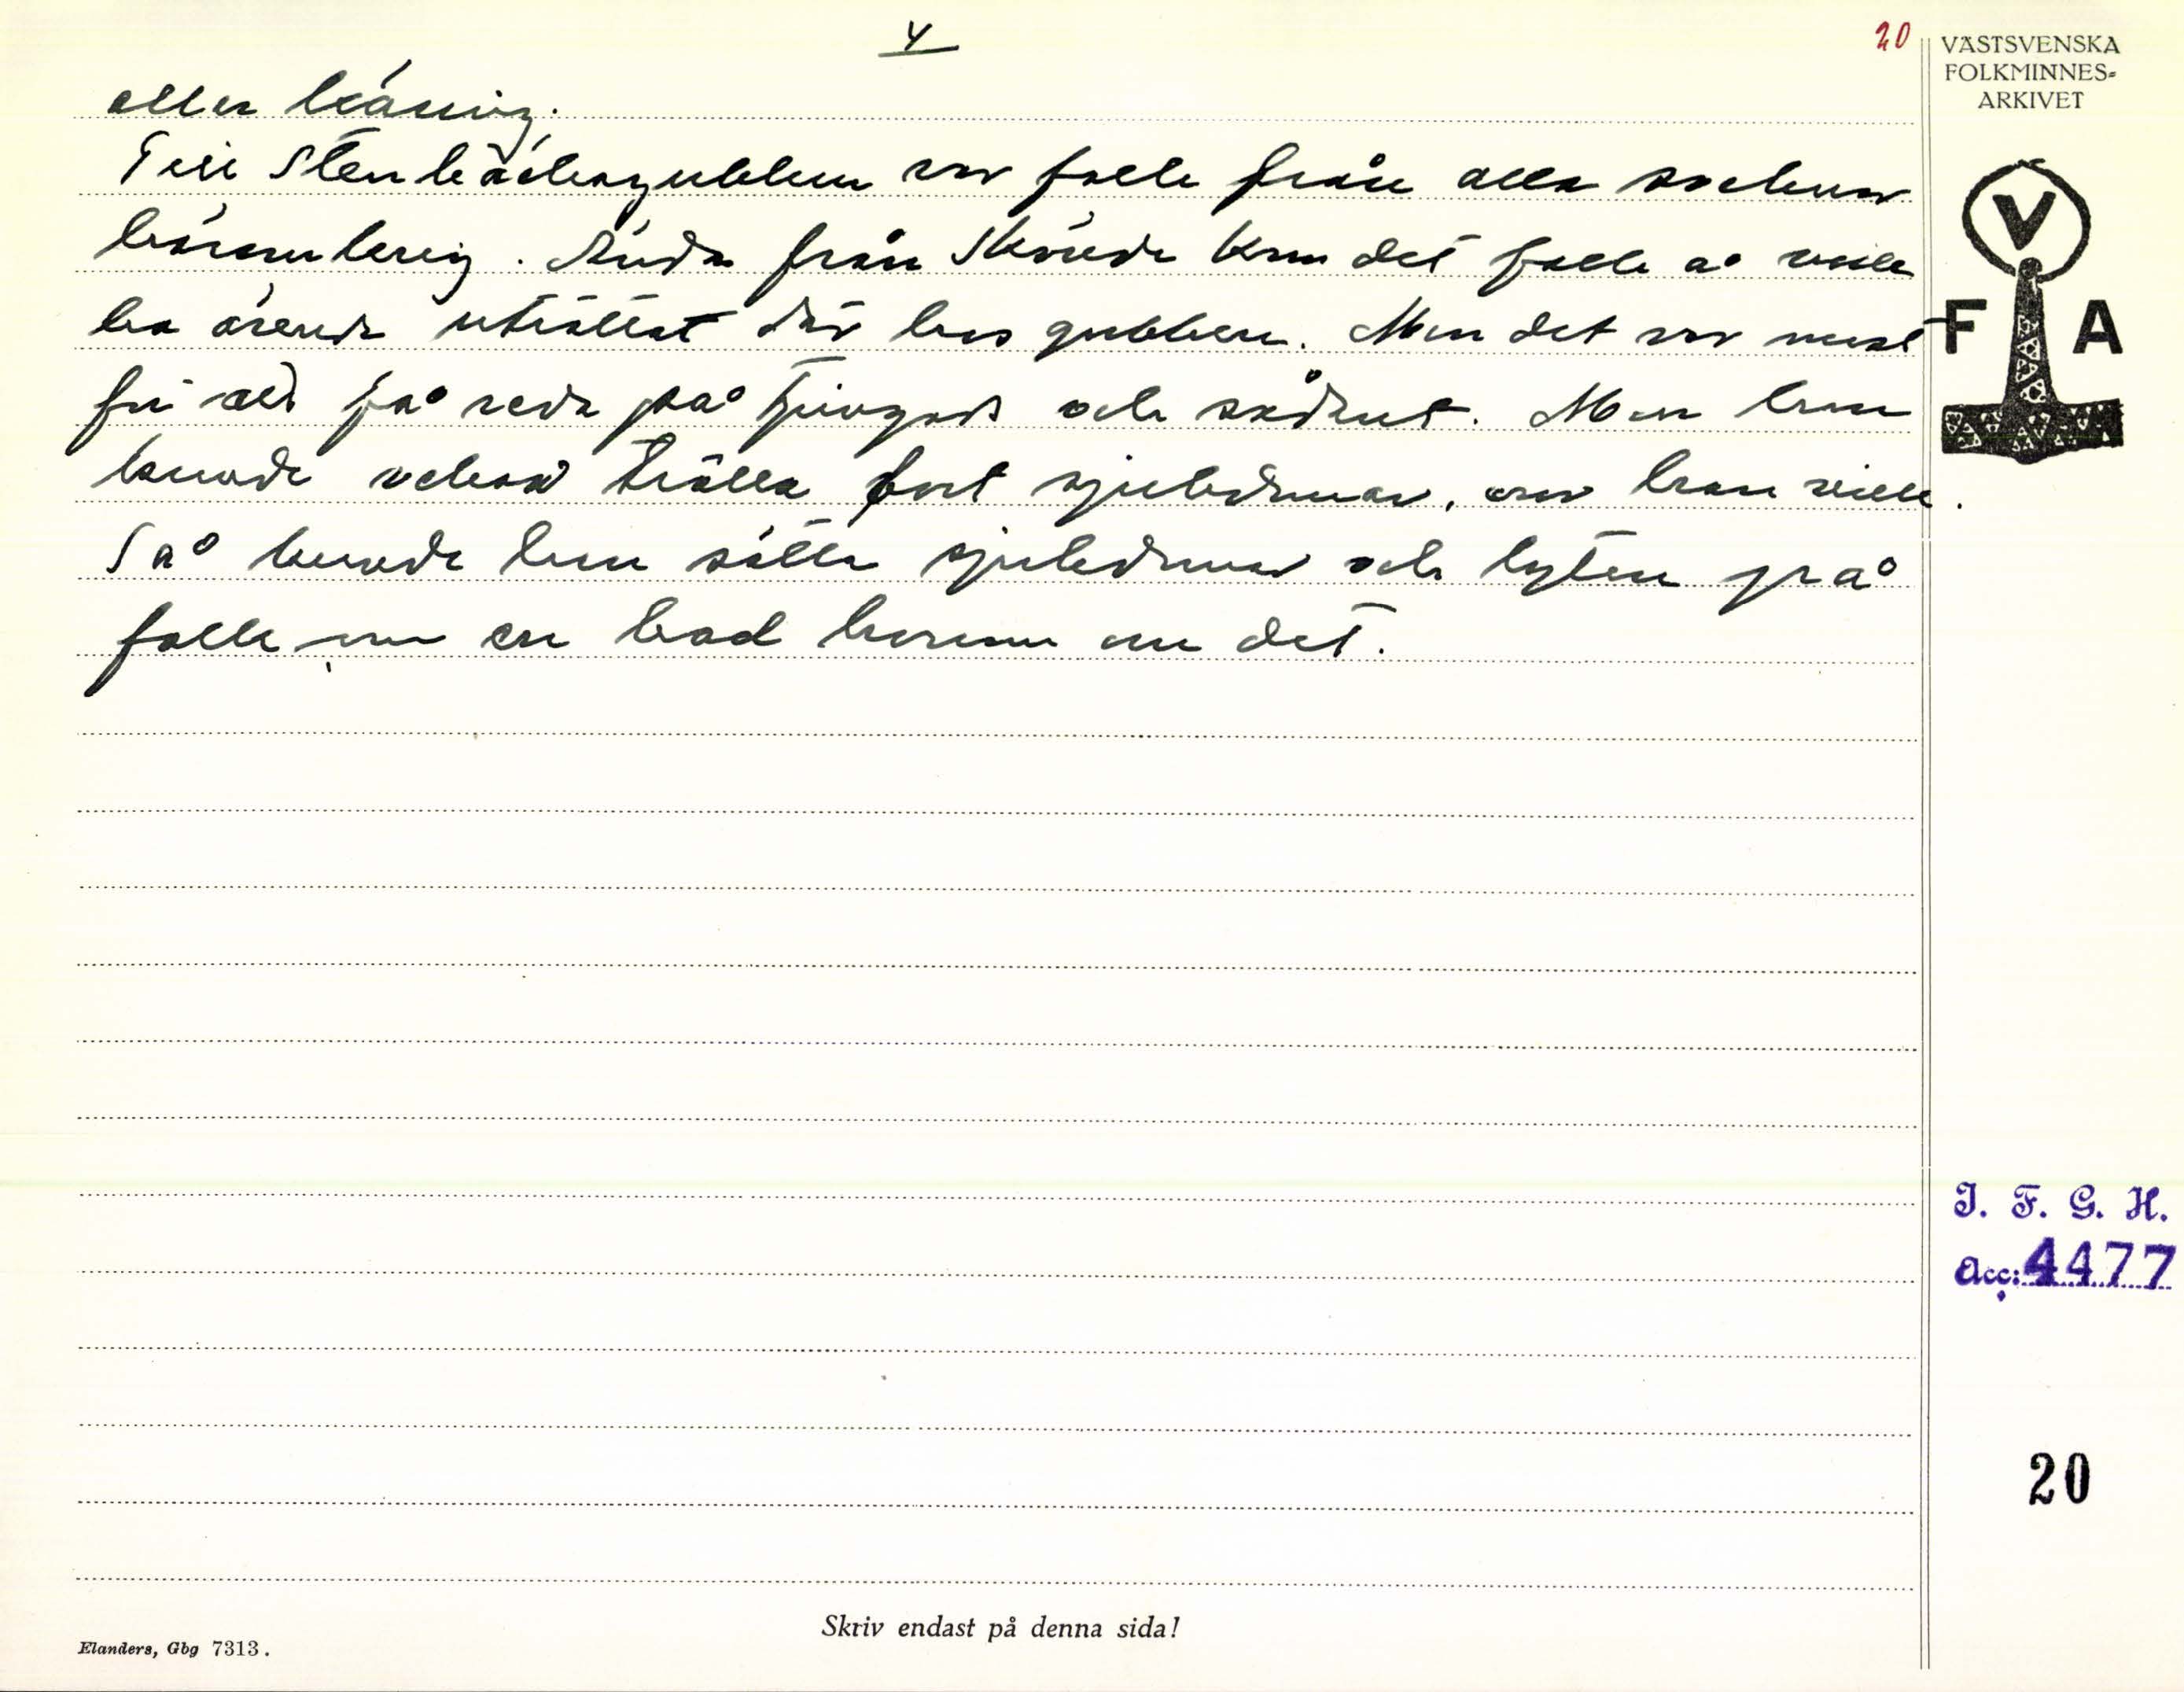 4
20
VÄSTSVENSKA
FOLKMINNES-
ARKIVET
eller läsning.
Till Stenbäcksgubben var folk från alla socknar
kring. Ända från Skövde kom det folk å ville
ha ärende uträttat där hos gubben. Men det var mest
för att få reda på tjuvgods och sådant. Men han
kunde också trolla bort sjukdomar, om han ville.
Så kunde han sätta sjukdomar och lyten på
folk om en bad honom om det.
V
F A
I. F. G. H.
Acc: 4477
20
Skriv endast på denna sida!
Elanders, Gbg 7313.